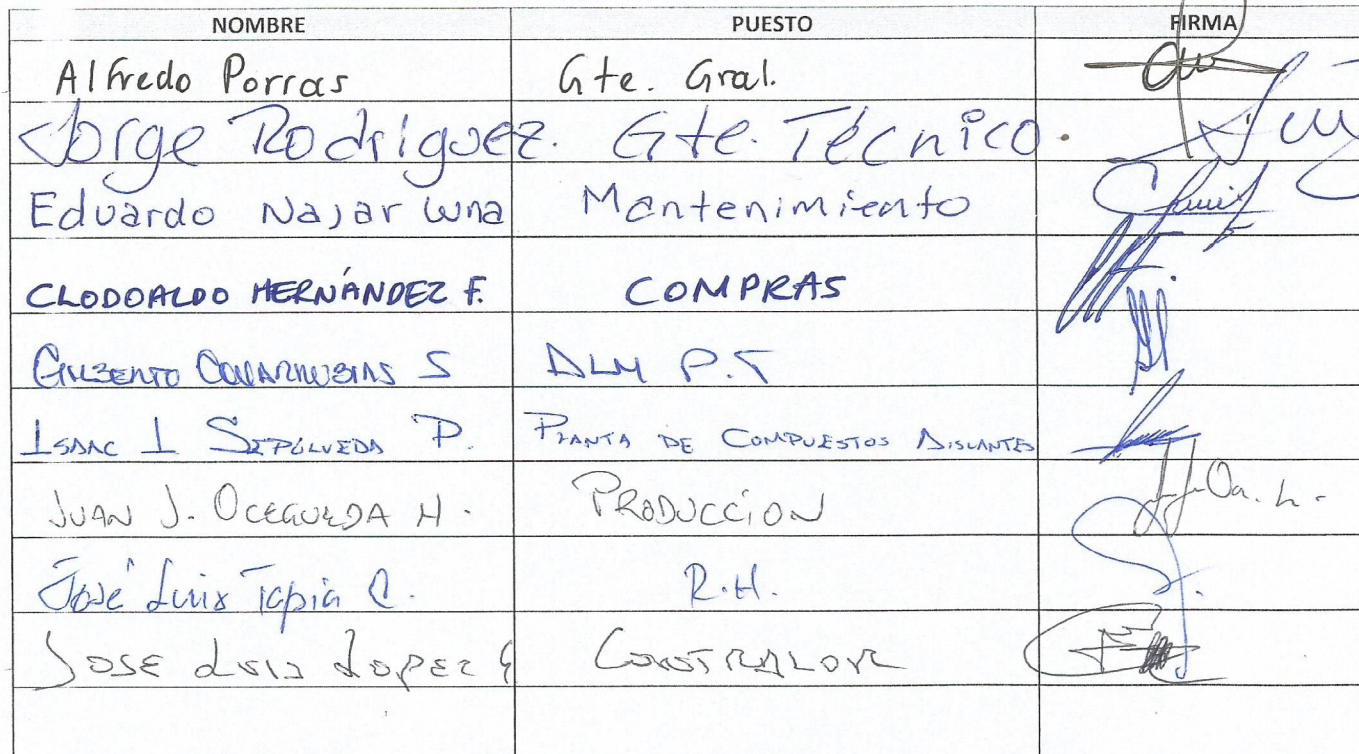 NOMBRE PUESTO FIRMA
Alfredo Porras Gte. Gral.
Jorge Rodríguez. Gte. Técnico.
Eduardo Najar Luna Mantenimiento
CLODOALDO HERNÁNDEZ F. COMPRAS
GILBERTO COVARRUBIAS S ALM P.T
ISAAC I SEPÚLVEDA P. PLANTA DE COMPUESTOS AISLANTES
JUAN J. OCEGUEDA H. PRODUCCIÓN
José Luis Tapia C. R.H.
JOSE LUIS LOPEZ CONTRALOR